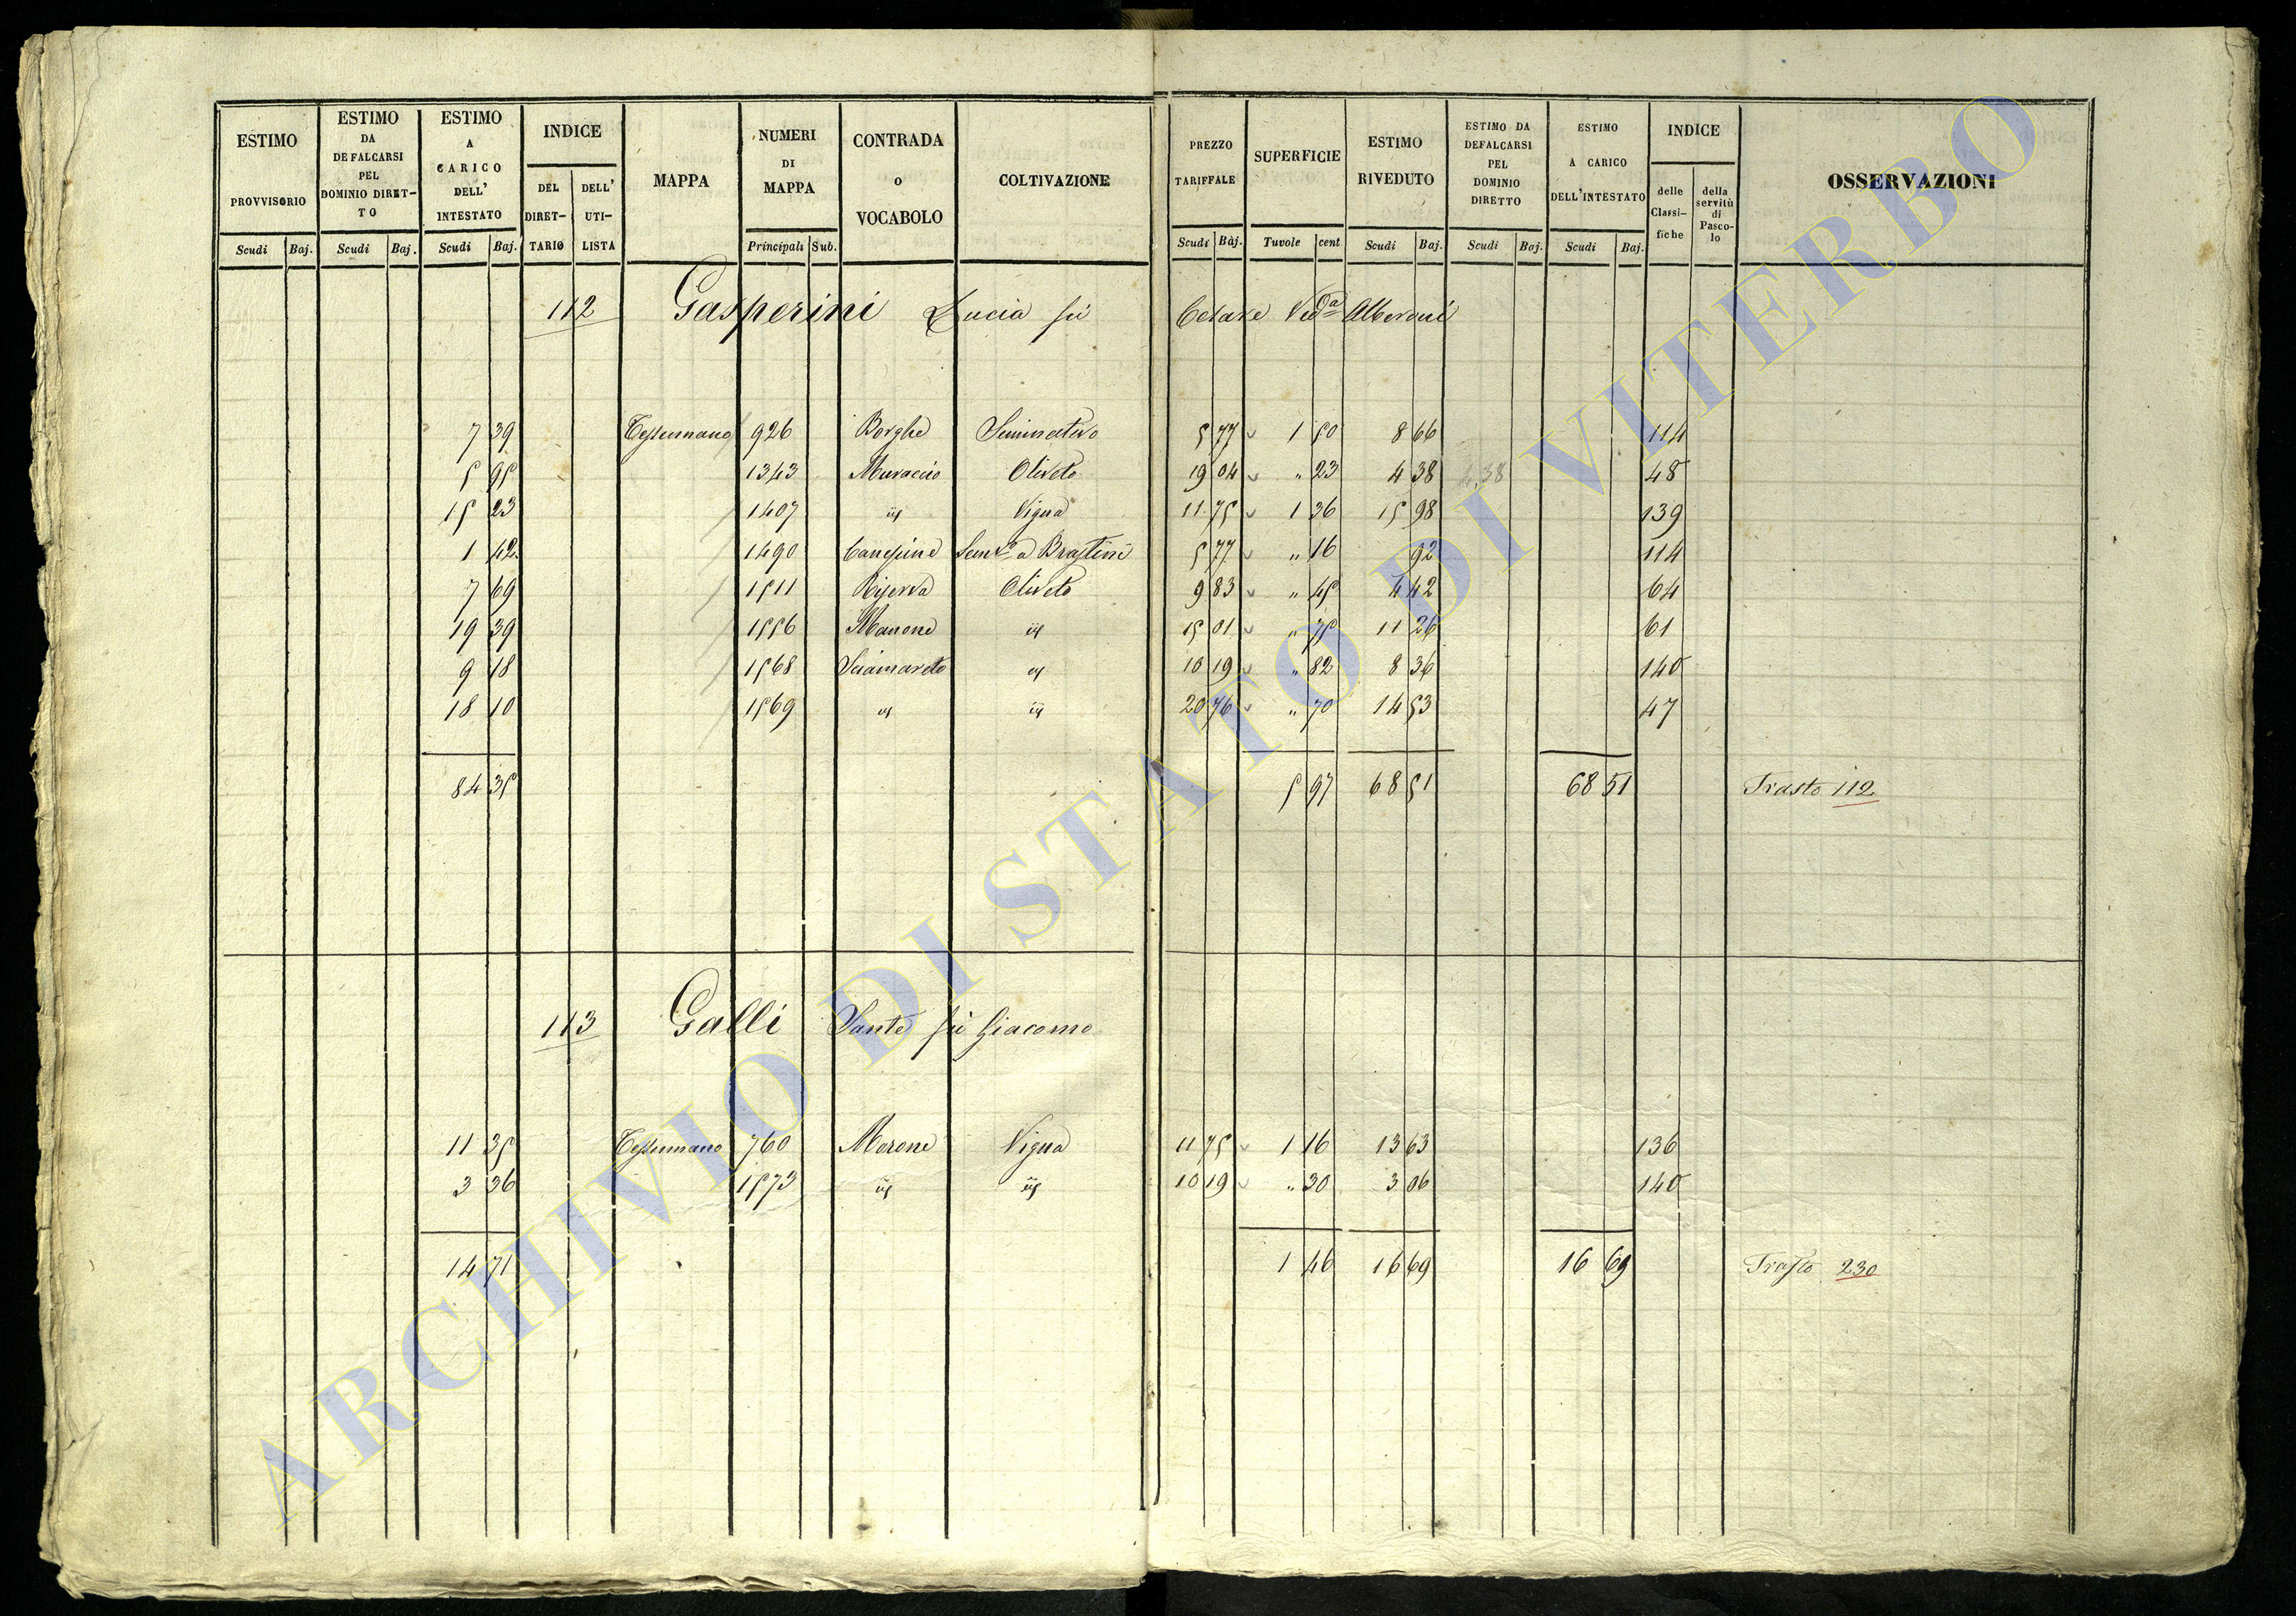 ESTIMO PROVVISORIO Scudi Baj.
ESTIMO DA DEFALCARSI PEL DOMINIO DIRET-TO Scudi Baj.
ESTIMO A CARICO DELL' INTESTATO Scudi Baj.
INDICE DEL DIRET-TARIO DELL' UTI-LISTA
MAPPA
NUMERI DI MAPPA Principali Sub.
CONTRADA o VOCABOLO
COLTIVAZIONE
PREZZO TARIFFALE Scudi Baj.
SUPERFICIE Tavole cent
ESTIMO RIVEDUTO Scudi Baj.
ESTIMO DA DEFALCARSI PEL DOMINIO DIRETTO Scudi Baj.
ESTIMO A CARICO DELL'INTESTATO Scudi Baj.
INDICE delle Classi-fiche della servitù di Pasco-lo
OSSERVAZIONI
112 Gasperini Lucia fù Cesare Ved.a Alberoni
7 39 Tessennano 926 Borghe Seminativo 5 77 1 50 8 66 114
5 95 1343 Muraccio Oliveto 19 04 " 23 4 38 4 38 48
15 23 1407 id Vigna 11 75 1 36 15 98 139
1 42 1490 5 77 " 16 92 114
7 69 1511 Riserva Oliveto 9 83 " 45 4 42 64
19 39 1556 Marone id 15 01 " 75 11 26 61
9 18 1568 Sciamareto id 10 19 " 82 8 36 140
18 10 1569 id id 20 76 " 70 14 53 47
84 35 5 97 68 51 68 51 Trasto 112
113 Galli Sante fù Giacomo
11 35 Tessennano 760 Marone Vigna 11 75 1 16 13 63 136
3 36 1573 id id 10 19 " 30 3 06 140
14 71 1 46 16 69 16 69 Trasto 230
ARCHIVIO DI STATO DI VITERBO